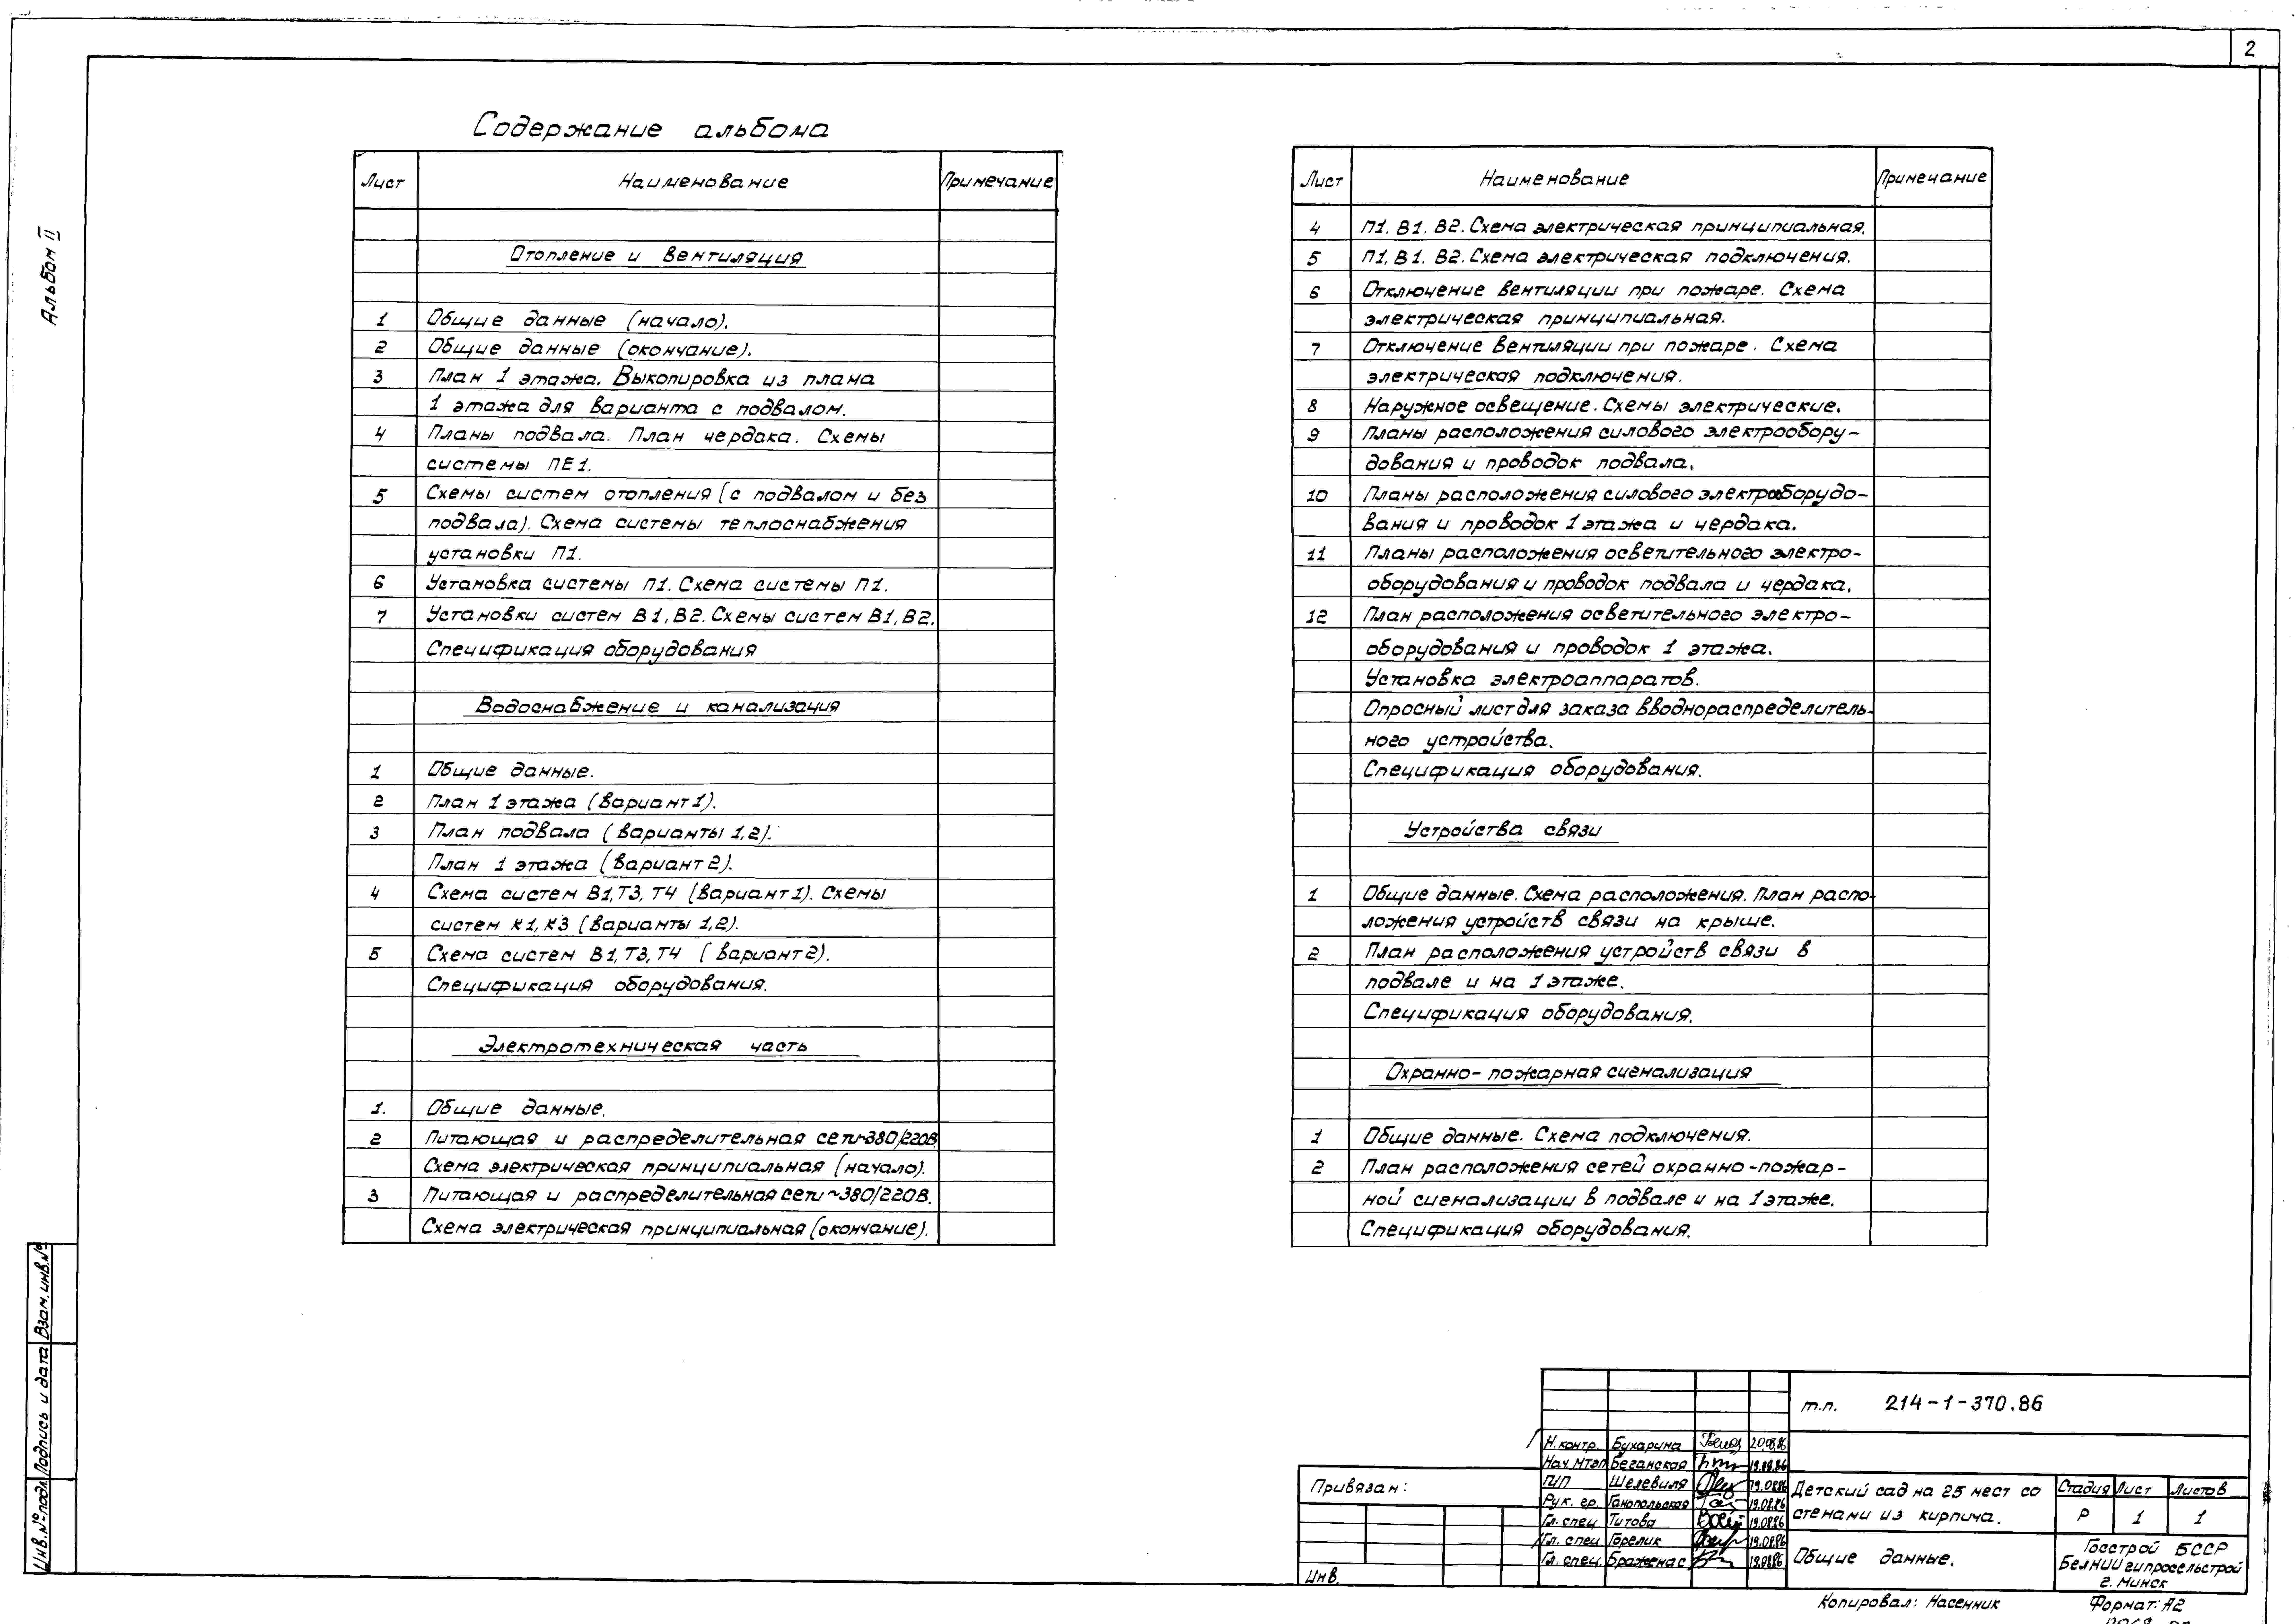 2
Альбом II
Содержание альбома
Лист Наименование Примечание
Отопление и вентиляция
1 Общие данные (начало).
2 Общие данные (окончание).
3 План 1 этажа. Выкопировка из плана
1 этажа для варианта с подвалом.
4 Планы подвала. План чердака. Схемы
системы ПЕ1.
5 Схемы систем отопления (с подвалом и без
подвала). Схема системы теплоснабжения
установки П1.
6 Установка системы П1. Схема системы П1.
7 Установки систем В1, В2. Схемы систем В1, В2.
Спецификация оборудования
Водоснабжение и канализация
1 Общие данные.
2 План 1 этажа (вариант 1).
3 План подвала (варианты 1,2).
План 1 этажа (вариант 2).
4 Схема систем В1, Т3, Т4 (вариант 1). Схемы
систем К1, К3 (варианты 1,2).
5 Схема систем В1, Т3, Т4 (вариант 2).
Спецификация оборудования.
Электротехническая часть
1. Общие данные.
2 Питающая и распределительная сети ~380/220В.
Схема электрическая принципиальная (начало).
3 Питающая и распределительная сети ~380/220В.
Схема электрическая принципиальная (окончание).
Лист Наименование Примечание
4 П1. В1. В2. Схема электрическая принципиальная.
5 П1, В1. В2. Схема электрическая подключения.
6 Отключение вентиляции при пожаре. Схема
электрическая принципиальная.
7 Отключение вентиляции при пожаре. Схема
электрическая подключения.
8 Наружное освещение. Схемы электрические.
9 Планы расположения силового электрообору-
дования и проводок подвала.
10 Планы расположения силового электрооборудо-
вания и проводок 1 этажа и чердака.
11 Планы расположения осветительного электро-
оборудования и проводок подвала и чердака.
12 План расположения осветительного электро-
оборудования и проводок 1 этажа.
Установка электроаппаратов.
Опросный лист для заказа вводнораспределитель-
ного устройства.
Спецификация оборудования.
Устройства связи
1 Общие данные. Схема расположения. План распо-
ложения устройств связи на крыше.
2 План расположения устройств связи в
подвале и на 1 этаже.
Спецификация оборудования.
Охранно-пожарная сигнализация
1 Общие данные. Схема подключения.
2 План расположения сетей охранно-пожар-
ной сигнализации в подвале и на 1 этаже.
Спецификация оборудования.
Взам. инв. №
Подпись и дата
Инв. № подл.
Привязан:
Инв.
т.п. 214-1-370.86
Н. контр. Бухарина 20.08.86
Нач МТЭП Беганская 19.08.86
ГИП Шелевиля 19.08.86
Рук. гр. Ганопольская 19.08.86
Гл. спец Титова 19.08.86
Гл. спец Горелик 19.08.86
Гл. спец. Браженас 19.08.86
Детский сад на 25 мест со
стенами из кирпича.
Стадия Лист Листов
Р 1 1
Общие данные.
Госстрой БССР
БелНИИгипросельстрой
г. Минск
Копировал: Насенник
Формат: А2